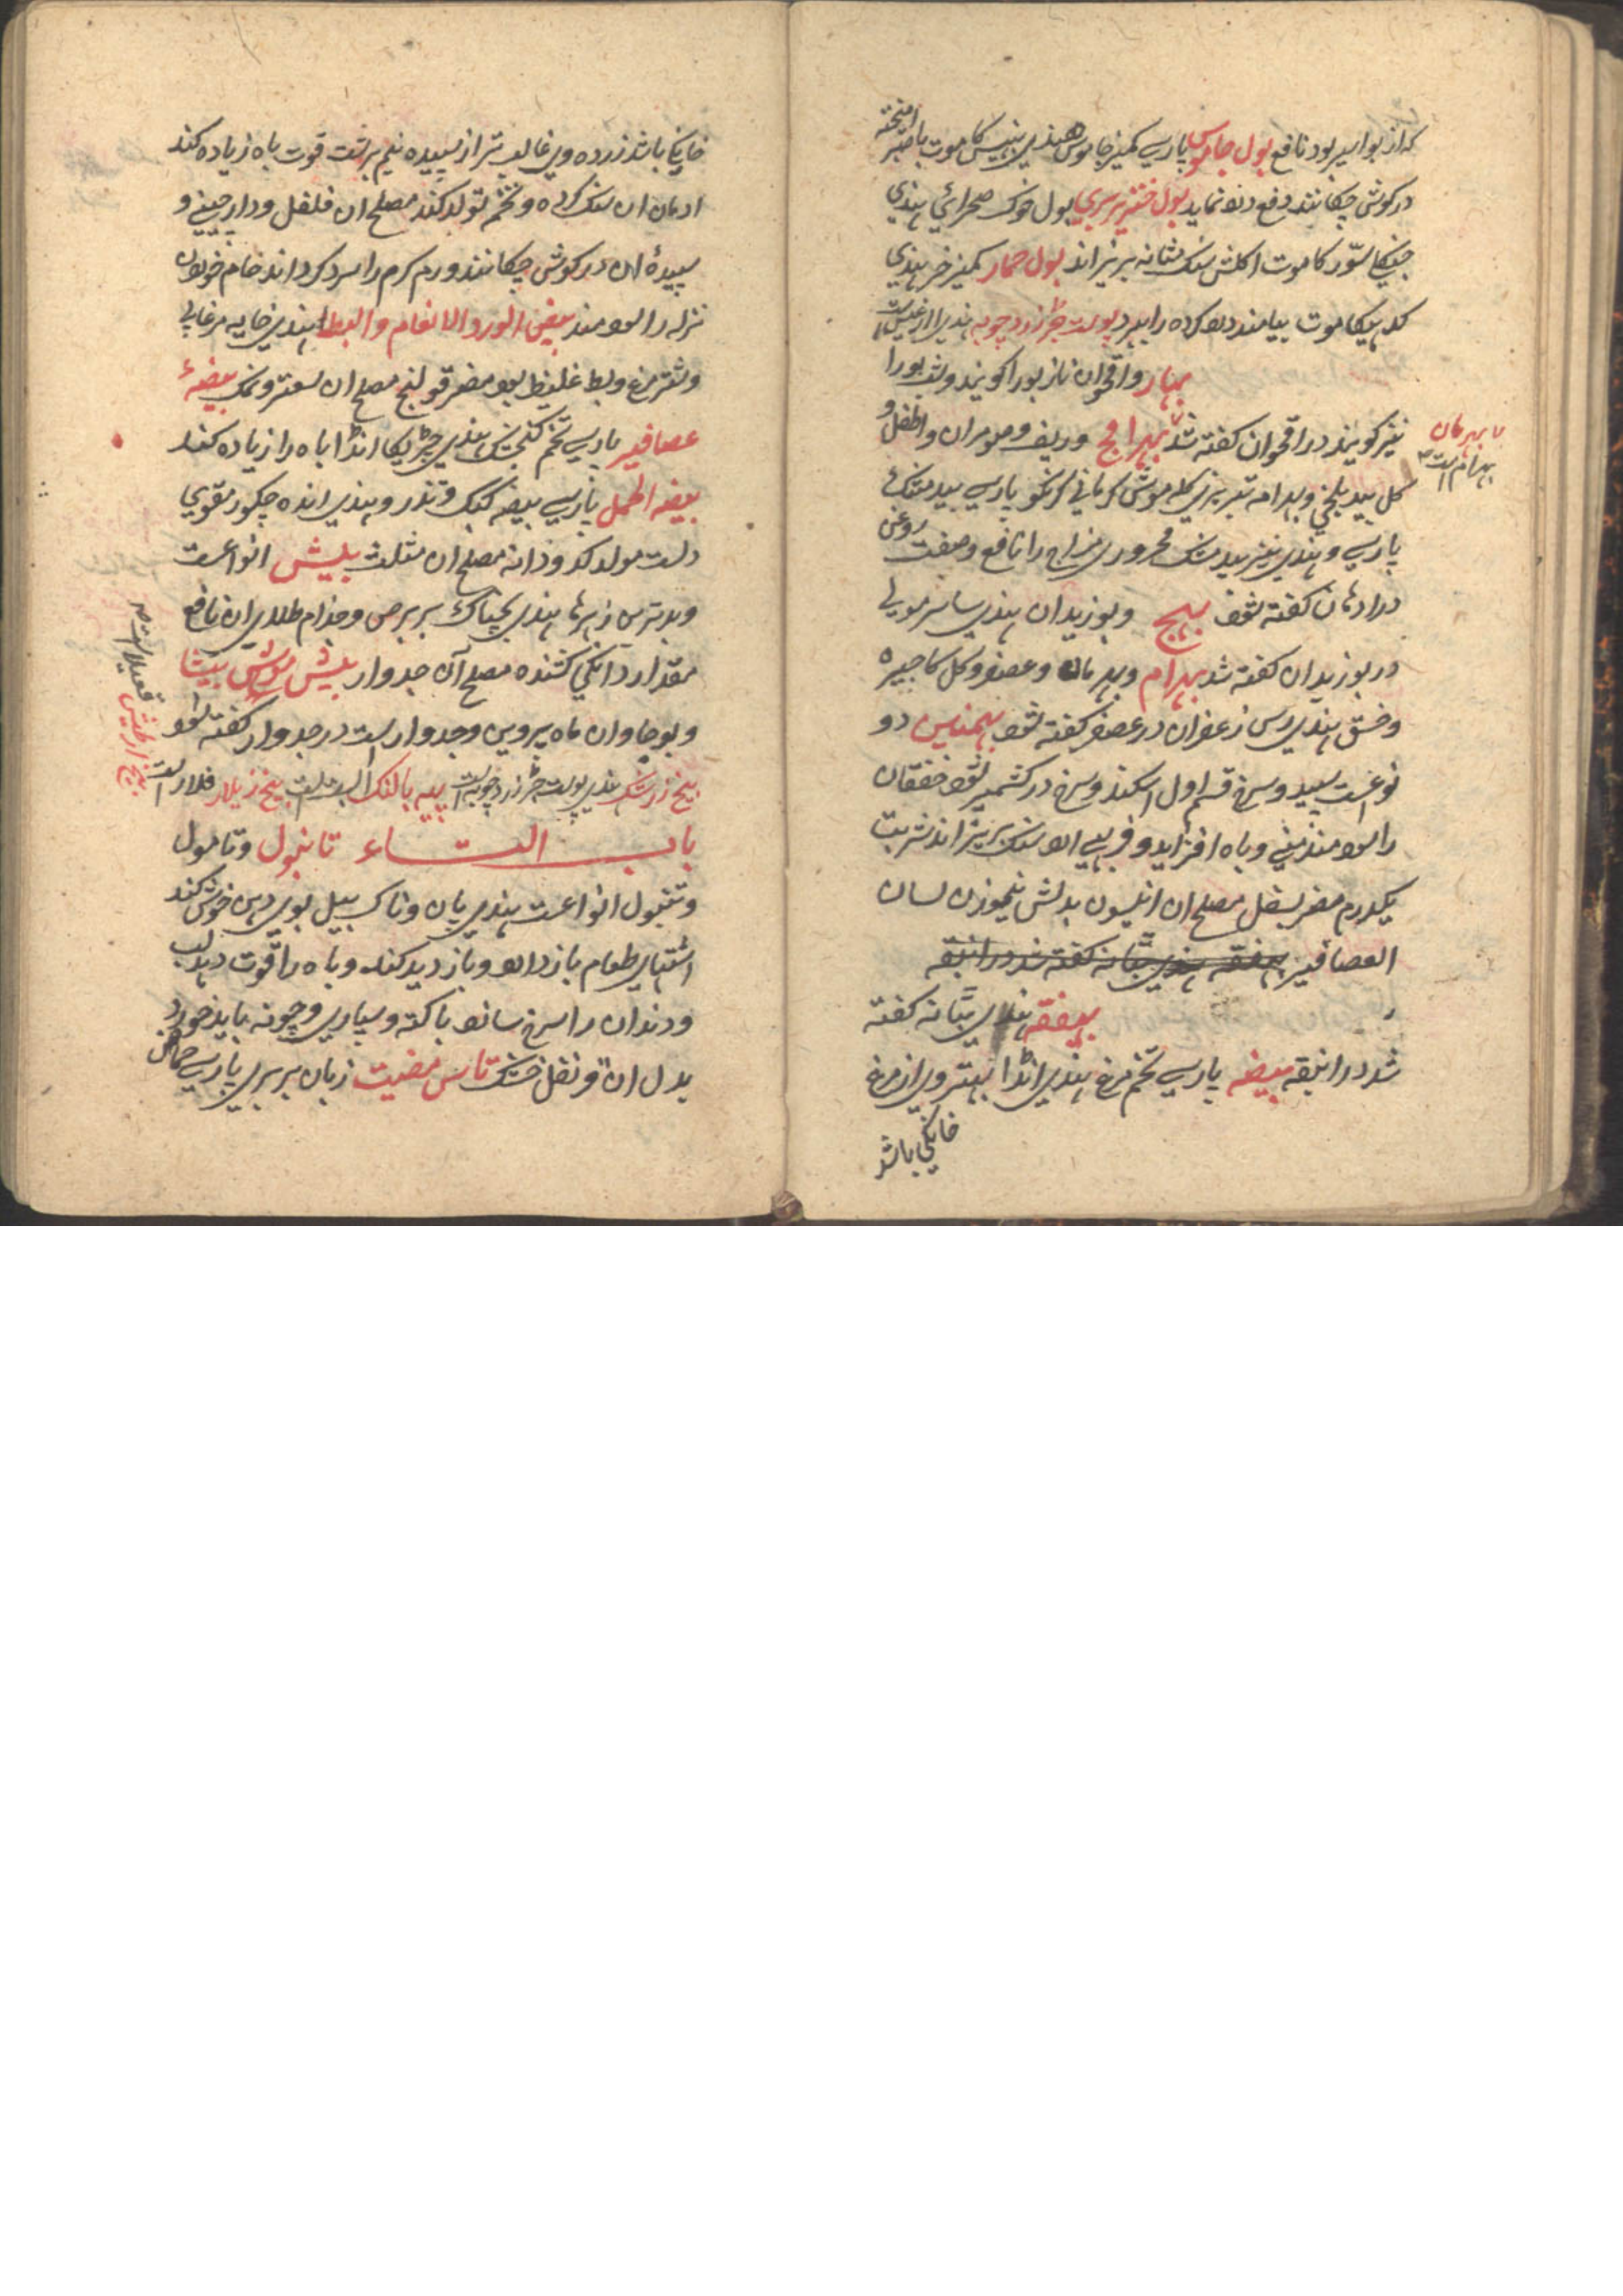 که از بواسیر بود نافع بول جاموس پارسی کمیز جاموس هندی بهینس کا موت با صبر امیخته
در کوش چکانند دفع درد نماید بول خنزیر بری بول خوک صحرائی هندی
جنکلی سور کا موت اکلش سنک مثانه بریزاند بول حمار کمیز خر هندی
کدهیکا موت بیامند درد کرده را ببرد پوست جر زرد چوبه هندی
بهار واقحوان نازبورا کویند و شب بورا
نیز کویند در اقحوان کفته شد بهرامج وریف و مومران و اطفل و
بهرام است
کل بید بلخی و بهرامه تبریزی کله موش کرمانی کرنکو پارسی بید مشک
پارسی و هندی نیز بید مشک محروری مزاج را نافع و صفت روغن
در ادهان کفته شود بهج و بوزیدان هندی ستاسر مولی
در بوزیدان کفته شد بهرام و بهرمان و عصفر و کل کاجیره
و خسق هندی رس زعفران در عصفر کفته شود بهمنین دو
نوعست سپید و سرخ قسم اول اسکند و سرخ در کشمیر شود خفقان
را سود مند منی و باه افزاید و فربهی ارد سنک بریزاند شربت
یکدرم مضر بسفل مصلح ان انیسون بدلش نیموزن لسان
العصافیر بهفقه هندی بتانه کفته شد در انبقه
بهفقه هندی بتانه کفته
شد در انبقه بیضه پارسی تخم مرغ هندی اندا بهتر وی از مرغ
خانکی باشد
خانکی باشد زرده وی غالب تر از سپیده نیم برشت قوت باه زیاده کند
ادمان ان سنک کرده و تخم تولد کند مصلح ان فلفل و دارچینی و
سپیده ان در کوش چکانند ورم کرم را سرد کرداند خام خوردن
نزله را سود مند بیض الورد الانعام والبط هندی خایه مرغابی
و شتر مرغ و بط غلیظ بود مضر قولنج مصلح ان سعتر و نمک بیضهٔ
عصافیر پارسی تخم کنجشک هندی چریکا اندا باه را زیاده کند
بیضه الحجل پارسی بیضه کبک و تذرو هندی انده چکور مقوی
دلست مولد کد ودانه مصلح ان مثلث بیش انواعست
و بدترین زهرها هندی بچناک بر برص و جذام طلای ان نافع
مقدار دانکی کشنده مصلح آن جدوار بیش موش بیشا
و بوحا وان ماه پروین و جدوار است در جدوار کفته شود
بیخ زرشک هندی پوست جر زرد چوبه است
باب التاء تانبول و تامول
و تنبول انواعست هندی پان و ناک بیل بوی دهن خوش کند
اشتهای طعام باز دارد و باز دید کند و باه را قوت دهد لب
و دندان را سرخ سازد با کته و سپاری و چونه باید خورد
بدل ان قرنفل خشک تاسمضیت زبان بربری پارسی حماض